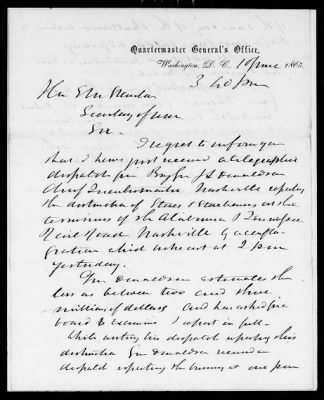 Quartermaster General's Office,
Washington, D. C. 10 June 1865.
3 40 pm
Hon E M Stanton
Secretary of War
Sir
I regret to inform you
that I have just received a telegraphic
dispatch from J L Donaldson
Chief Quartermaster Nashville reporting
the destruction of Stores & at the
terminus of the Alabama & Tennessee
Rail Road Nashville by a
which at 2 pm
yesterday.
Gen Donaldson estimates the
loss as between two and three
millions of dollars and has asked for a
board to examine & report in full—
While writing this dispatch reporting this
destruction Gen Donaldson received a
dispatch reporting the at one pm